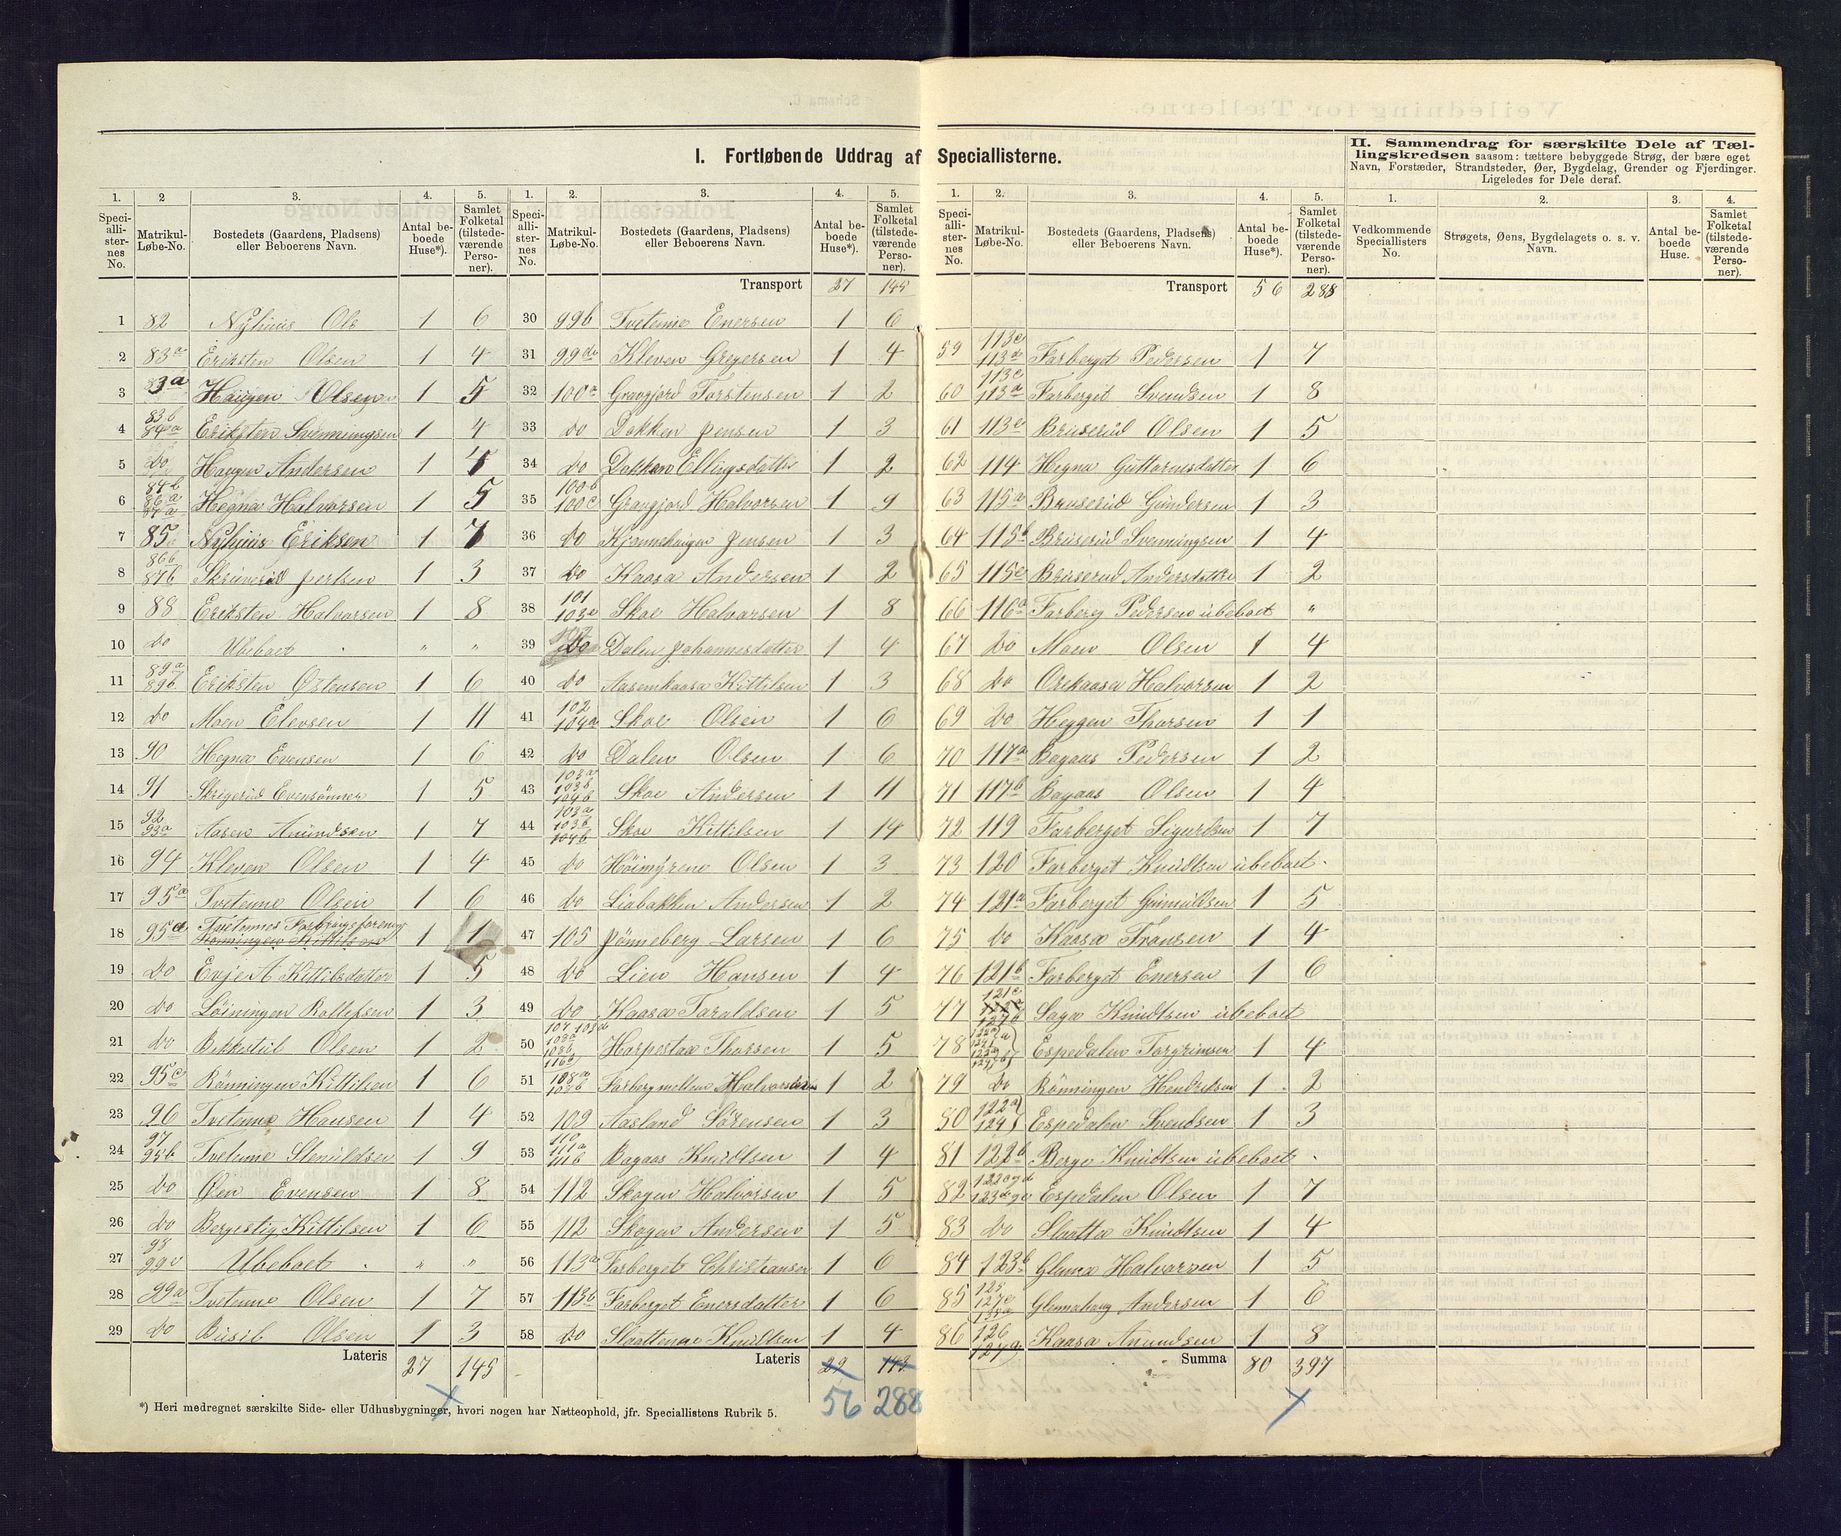 I. Fortløbende Uddrag af Speciallisterne.
II. Sammendrag for særskilte Dele af Tællingskredsen saasom: tættere bebyggede Strøg, der bære eget Navn, Forstæder, Strandsteder, Øer, Bygdelag, Grender og Fjerdinger. Ligeledes for Dele deraf.
1. 2 3. 4. 5.
Speciallisternes No. Matrikul-Løbe-No. Bostedets (Gaardens, Pladsens) eller Beboerens Navn. Antal beboede Huse*). Samlet Folketal (tilstedeværende Personer).
1 82 Nyhuus Ols 1 6
2 83a Eriksten Olsen 1 4
3 83a Haugen Olsen 1 5
4 83b 84a Eriksten Svenningsen 1 4
5 do Haugen Andersen 1
6 84b 86a 87a Hegna Halvorsen 1 5
7 85 Nyhuus Eriksen 1 7
8 86b 87b 1 3
9 88 Eriksten Halvorsen 1 8
10 do Ubeboet " "
11 89a 89b Eriksten Østensen 1 6
12 do Moen Elevsen 1 11
13 90 Hegna Evensen 1 6
14 91 Skrigerud Evensønner 1 5
15 92 93a Aasen Amundsen 1 7
16 94 Kleven Olsen 1 4
17 95a Tvetenne Olsen 1 6
18 95a Tvetennes 1 1
19 do Evje A Kittilsdatter 1 5
20 do Løiningen Rollefsen 1 3
21 do Bekkestul Olsen 1 2
22 95c Rønningen Kittilsen 1 6
23 96 Tvetenne Hansen 1 4
24 97 95b Tvetenne Stenuldsen 1 9
25 do Øen Evensen 1 8
26 do Bergestig Kittilsen 1 6
27 98 99c Ubeboet " "
28 99a Tvetenne Olsen 1 7
29 do Busil Olsen 1 3
Lateris 27 145
1. 2. 3. 4. 5.
Speciallisternes No. Matrikul-Løbe-No. Bostedets (Gaardens, Pladsens) eller Beboerens Navn. Antal beboede Huse*). Samlet Folketal (tilstedeværende Personer).
Transport 27 145
30 99b Tvetenne Enersen 1 6
31 99dc Kleven Gregersen 1 4
32 100a Gravgjord Torstensen 1 2
33 do Dokken Jensen 1 3
34 do Dokken Ellingsdatter 1 2
35 100b 100c Gravgjord Halvorsen 1 9
36 do Kjømshaugen Jensen 1 3
37 do Kaasa Andersen 1 2
38 101 103c Skoe Halvorsen 1 8
39 do Dalen Johannesdatter 1 4
40 do Aasemkaasa Kittilsen 1 3
41 102 104a Skoe Olsen 1 6
42 do Dalen Olsen 1 6
43 103a 103b 104b Skoe Andersen 1 11
44 103a 103b 104b Skoe Kittilsen 1 14
45 do Høimyrene Olsen 1 3
46 do Liabakken Andersen 1 2
47 105 Jønneberg Larsen 1 6
48 do Lien Hansen 1 4
49 do Kaasa Taraldsen 1 5
50 Harpestaa Thorsen 1 5
51 108a 108b Farbergmellem Halvorsen 1 2
52 109 Aasland Sørensen 1 3
53 110 111a 111b Bagaas Knudtsen 1 4
54 112 Skogen Halvorsen 1 5
55 112 Skogen Andersen 1 5
56 113a Farberget Christiansen 1 6
57 113b Farberget Enersdatter 1 6
58 do Slaattenne Knudtsen 1 4
Lateris 29 143
56 288
1. 2. 3. 4. 5.
Speciallisternes No. Matrikul-Løbe-No. Bostedets (Gaardens, Pladsens) eller Beboerens Navn. Antal beboede Huse*). Samlet Folketal (tilstedeværende Personer).
Transport 56 288
59 113c 113d Farberget Pedersen 1 7
60 113c 113a Farberget Svendsen 1 8
61 113c Bruserud Olsen 1 5
62 114 Hegna Guttormsdatter 1 6
63 115a Bruserud Gundersen 1 3
64 115b Bruserud Svenningsen 1 4
65 115c Bruserud Andersdatter 1 2
66 116a Farberg Pedersen ubeboet "
67 do Moen Olsen 1 4
68 do Orekaasa Halvorsen 1 2
69 do Heggen Thorsen 1 1
70 117a Bagaas Pedersen 1 2
71 117b Bagaas Olsen 1 4
72 119 Farberget Sigurdsen 1 7
73 120 Farberget Knudtsen ubeboet
74 121a Farberget Gunnuldsen 1 5
75 do Kaasa Fransen 1 4
76 121b Farberget Enersen 1 6
77 121c Saga Knudtsen ubeboet
78 Espedalen Torgrimsen 1 4
79 do Rønningen Hendriksen 1 2
80 122a 124 Espedalen Svendsen 1 3
81 122b Berge Knudtsen ubeboet
82 Espedalen Olsen 1 7
83 do Slaatta Knudtsen 1 4
84 123b Glenna Halvorsen 1 5
85 125 127c Glennahaug Andersen 1 6
86 126 127a Kaasa Amundsen 1 8
Summa 80 397
1. 2. 3. 4.
Vedkommende Speciallisters No. Strøgets, Øens, Bygdelagets o. s. v. Navn. Antal beboede Huse. Samlet Folketal (tilstedeværende Personer).
*) Heri medregnet særskilte Side- eller Udhusbygninger, hvori nogen har Natteophold, jfr. Speciallistens Rubrik 5.